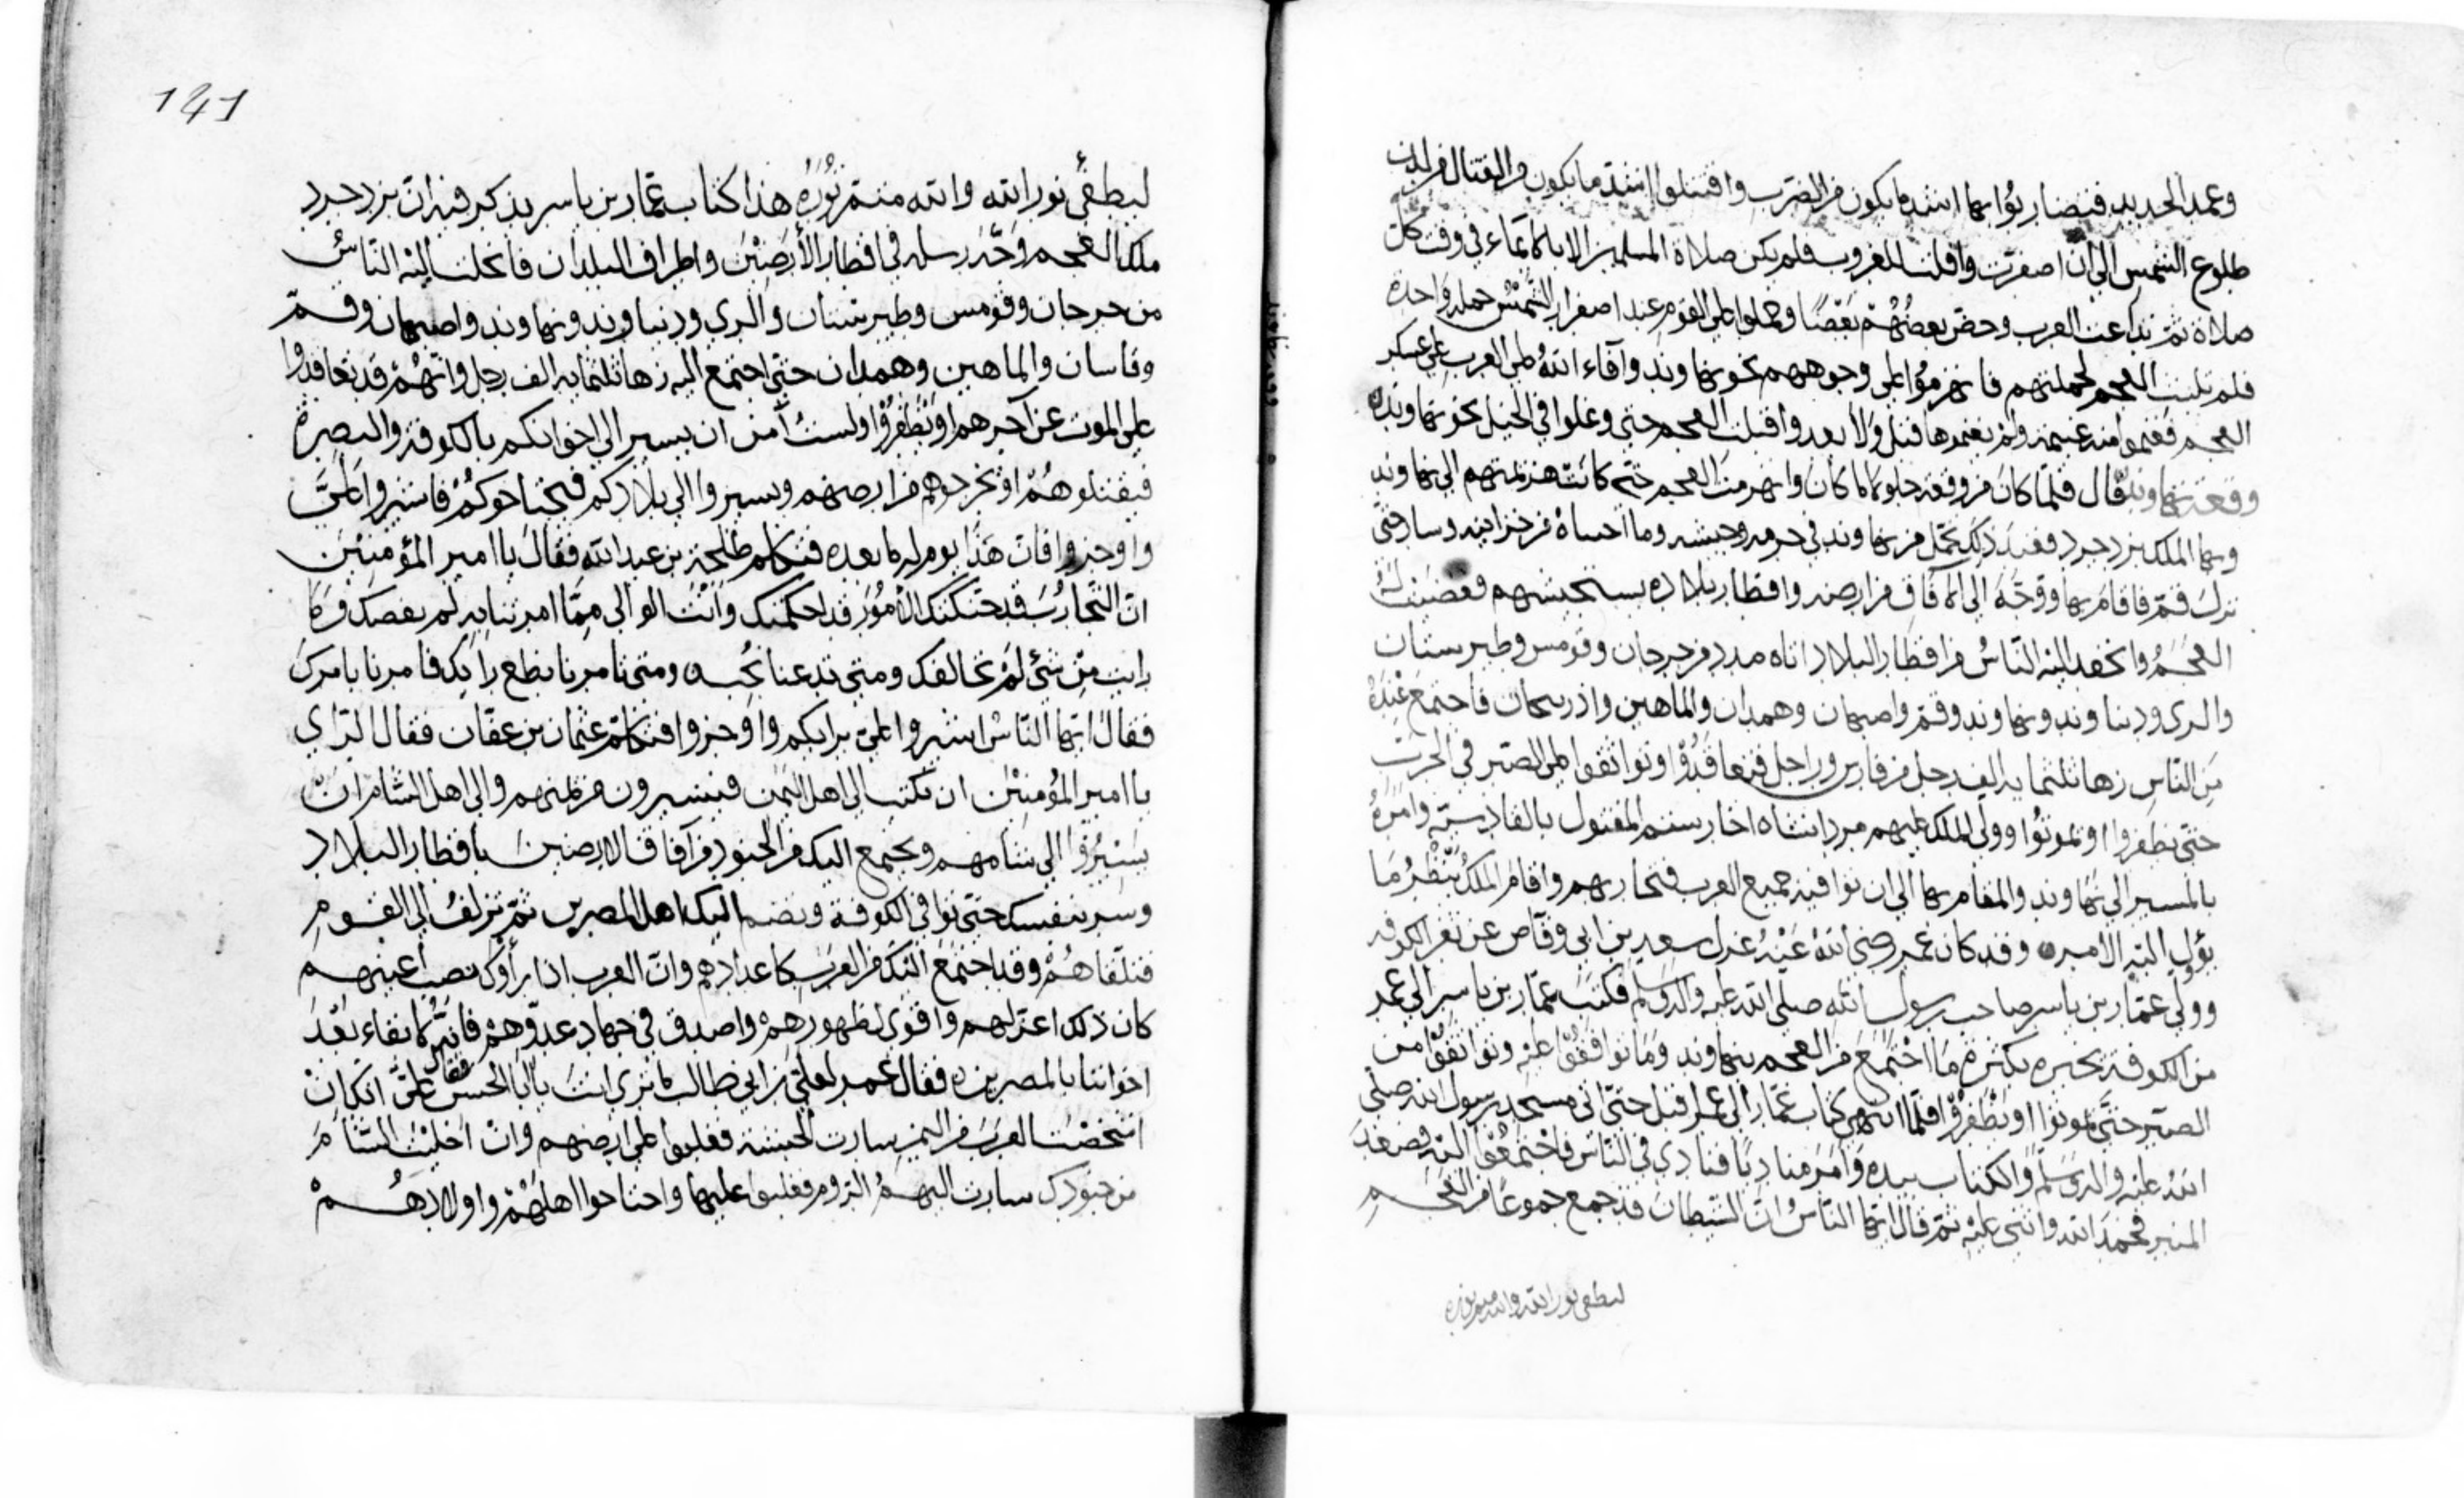 وعمد الحديد فتضاربوا بها اشد ما يكون من الضرب واقتتلوا اشد ما يكون من القتال من لدن
طلوع الشمس الى ان اصفرت واقلت للغروب فلم يكن صلاة المسلمين الا بالايماء في وقت كل
صلاة ثم تداعت العرب وحض بعضهم بعضا وحملوا على القوم عند اصفرار الشمس حملة واحدة
فلم تلبث العجم لحملتهم فانهزموا على وجوههم نحو نهاوند وآفاء الله على العرب على عسكر
العجم فغنموا منه غنيمة ولم يغنموها قبل ولا بعد واقبلت العجم حتى وغلوا في الخيل نحو نهاوند
وقعة نهاوند قال فلما كان من وقعة جلولا ما كان وانهزمت العجم حتى كانت هزيمتهم الى نهاوند
وبها الملك يزدجرد فعند ذلك تحمل من نهاوند في حرمه وحشمه وما احساه من خزاينه وسار حتى
نزل قم فاقام بها ووجه الى الآفاق من ارضه واقطار بلاده يستجيشهم فغضبت له
العجم وانحفد اليه الناس من اقطار البلاد اتاه مدد من جرجان وقومس وطبرستان
والرى ودنباوند ونهاوند وقم واصبهان وهمدان والماهين واذربيجان فاجتمع عنده
من الناس زها ثلثماية الف رجل من فارس وراجل فتعاقدوا وتواثقوا على الصبر في الحرب
حتى يظفروا او يموتوا وولى الملك عليهم مردانشاه اخا رستم المقتول بالقادسية وامره
بالمسير الى نهاوند والمقام بها الى ان توافيه جميع العرب فتحاربهم واقام الملك ينظر ما
يؤل اليه الامر وقد كان عمر رضي الله عنه عزل سعد بن ابى وقاص عن ثغر الكوفة
وولى عمار بن ياسر صاحب رسول الله صلى الله عليه والہ وسلم فكتب عمار بن ياسر الى عمر
من الكوفة يخبره بكثرة ما اجتمع من العجم بنهاوند وما توافقوا عليه وتواثقوا من
الصبر حتى يموتوا او يظفروا فلما انتهى كتاب عمار الى عمر اقبل حتى اتى مسجد رسول الله صلى
الله عليه واله وسلم والكتاب بيده وامر مناديا فنادي في الناس فاجتمعوا اليه فصعد
المنبر فحمد الله واثنى عليه ثم قال ايها الناس ان الشيطان قد جمع جموعا من العجم
ليطفى نور الله والله متم نوره
141
ليطفئ نور الله والله متم نوره هذا كتاب عمار بن ياسر يذكر فيه ان يزدجرد
ملك العجم وجه رسله في اقطار الأرضين واطراف البلدان فانجلت اليه الناس
من جرجان وقومس وطبرستان والري ودنباوند ونهاوند واصبهان وقم
وقاسان والماهين وهمدان حتى اجتمع اليه زها ثلثماية الف رجل وانهم قد تعاقدوا
على الموت عن آخرهم او يظفروا ولست آمن ان يسير الى اخوانكم بالكوفة والبصرة
فيقتلوهم او يخرجوهم من ارضهم ويسيروا الى بلادكم فيجتاحوكم فاشيروا علي
واوجزوا فان هذا يوم له ما بعده فتكلم طلحة بن عبد الله فقال يا امير المؤمنين
ان التجارب قد حنكتك الامور قد احكمتك وانت الوالي مما امرتنا به لم نعصك وما
رايت من شئ لم نخالفك ومتى تدعنا نجبه ومتى تامرنا نطع رايك فامرنا بامرك
فقال ايها الناس اشيروا علي برايكم واوجزوا فتكلم عثمان بن عفان فقال الراي
يا امير المؤمنين ان تكتب الى اهل اليمن فيسيرون من يمنهم والى اهل الشام ان
يسيروا الى شامهم ويجتمع اليك من الجنود من آفاق الارضين باقطار البلاد
وسر بنفسك حتى توافي الكوفة ويضم اليك اهل المصرين ثم تزلف الى القوم
فتلقاهم وقد اجتمع اليك من العرب كاعدادهم وان العرب اذا رأوك نصب اعينهم
كان ذلك اعز لهم واقوى لظهورهم واصدق في جهاد عدوهم فانه لا بقاء بعد
اخواننا بالمصرين فقال عمر لعلي بن ابي طالب ما ترى انت يا ابا الحسن فقال علي انك ان
اشخصت العرب من اليمن سارت الحبشة فغلبوا على ارضهم وان اخليت الشام
من جنودك سارت اليهم الروم فغلبوا عليها واجتاحوا اهلهم واولادهم